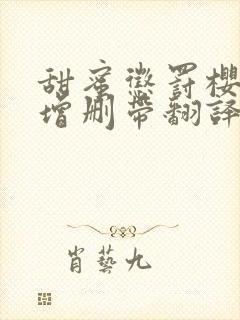 甜蜜懲罰櫻
增刪帶翻譯
肖藝九